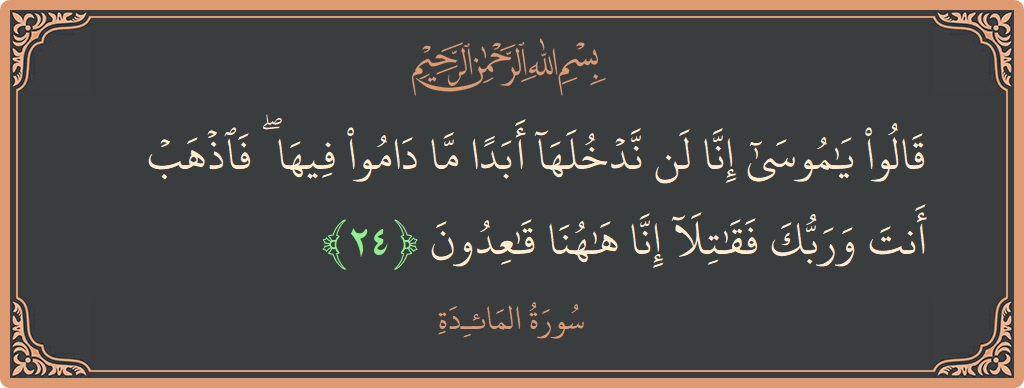 بِسْمِ اللهِ الرَّحْمٰنِ الرَّحِيْمِ
قَالُوا۟ يَـٰمُوسَىٰٓ إِنَّا لَن نَّدْخُلَهَآ أَبَدًا مَّا دَامُوا۟ فِيهَا ۖ فَٱذْهَبْ
أَنتَ وَرَبُّكَ فَقَـٰتِلَآ إِنَّا هَـٰهُنَا قَـٰعِدُونَ ﴿٢٤﴾
سُورَةُ المَائـِدَةِ